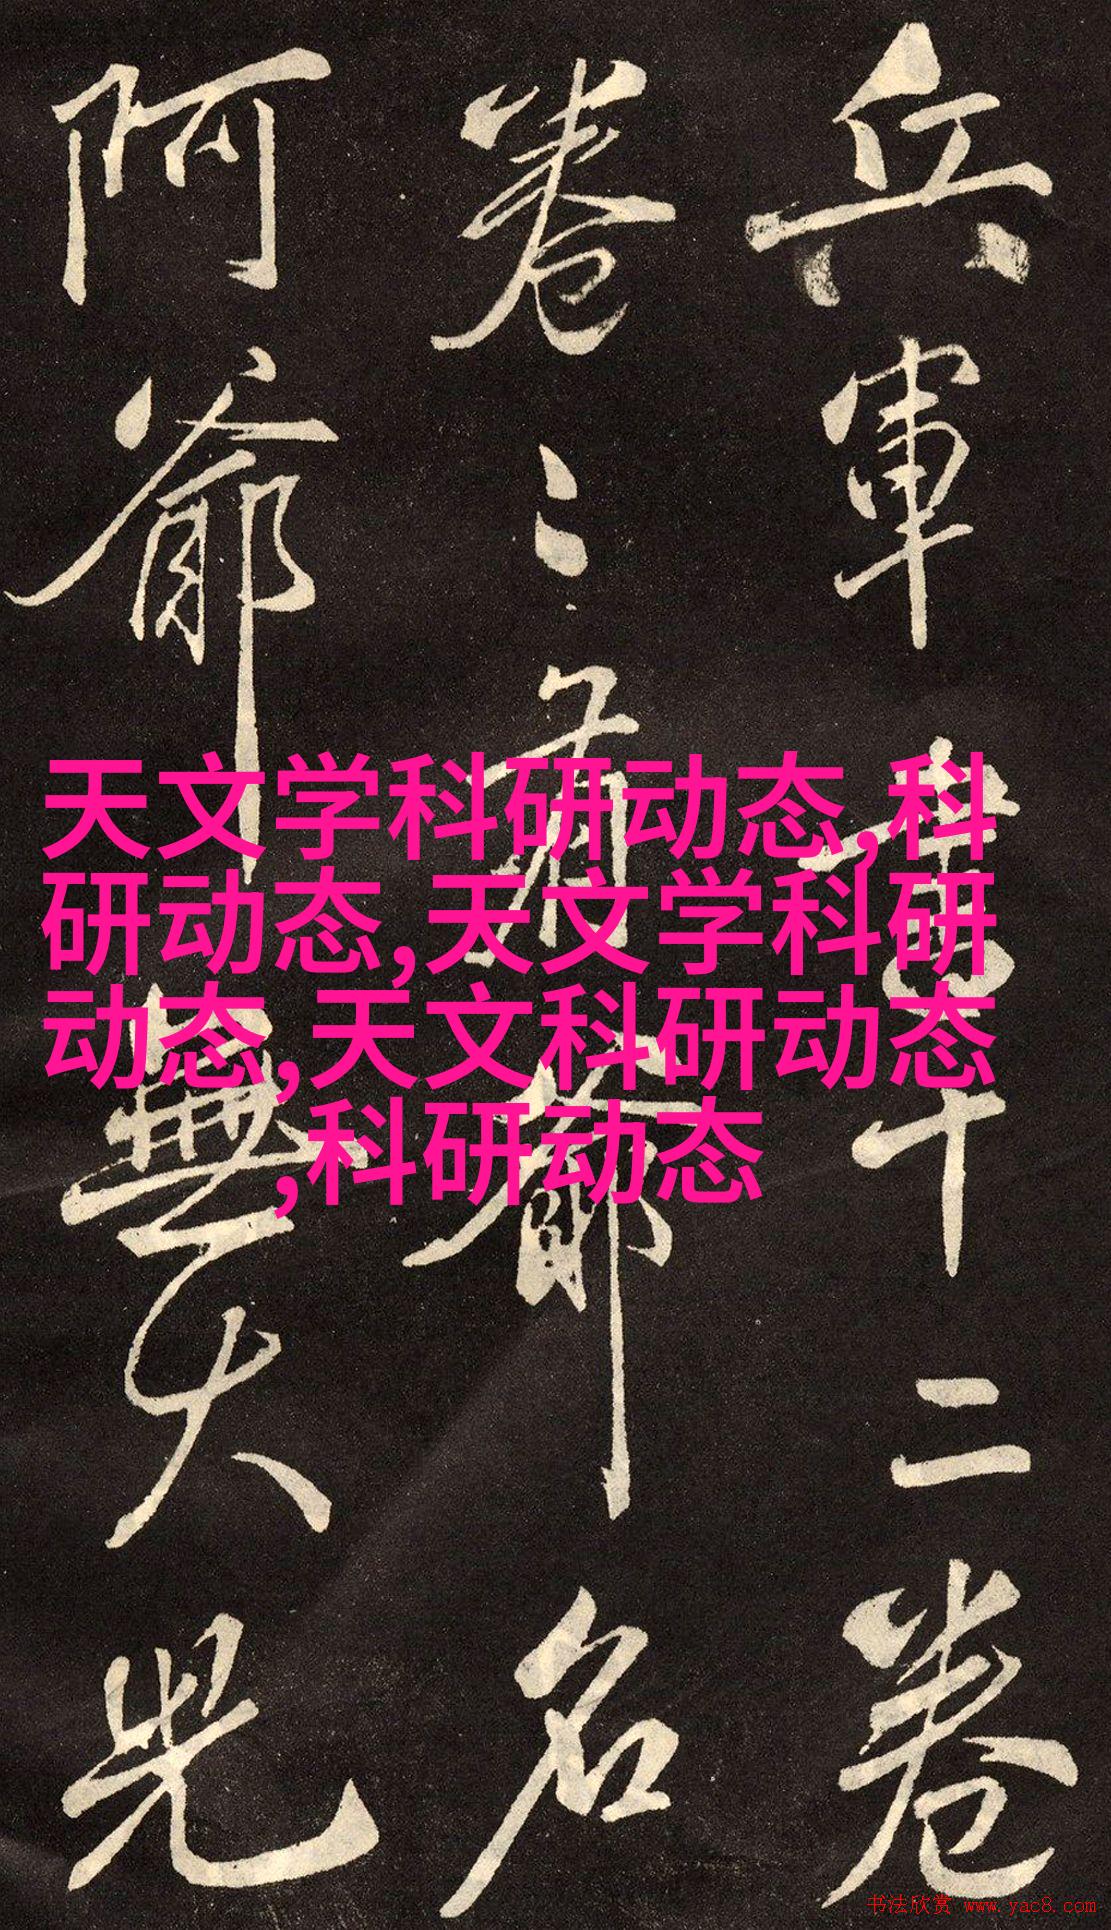 兵軍書十二卷
卷〻有爺名
阿爺無大兒
天文学科研动态,科
研动态,天文学科研
动态,天文科研动态
,科研动态
书法欣赏 www.yac8.com